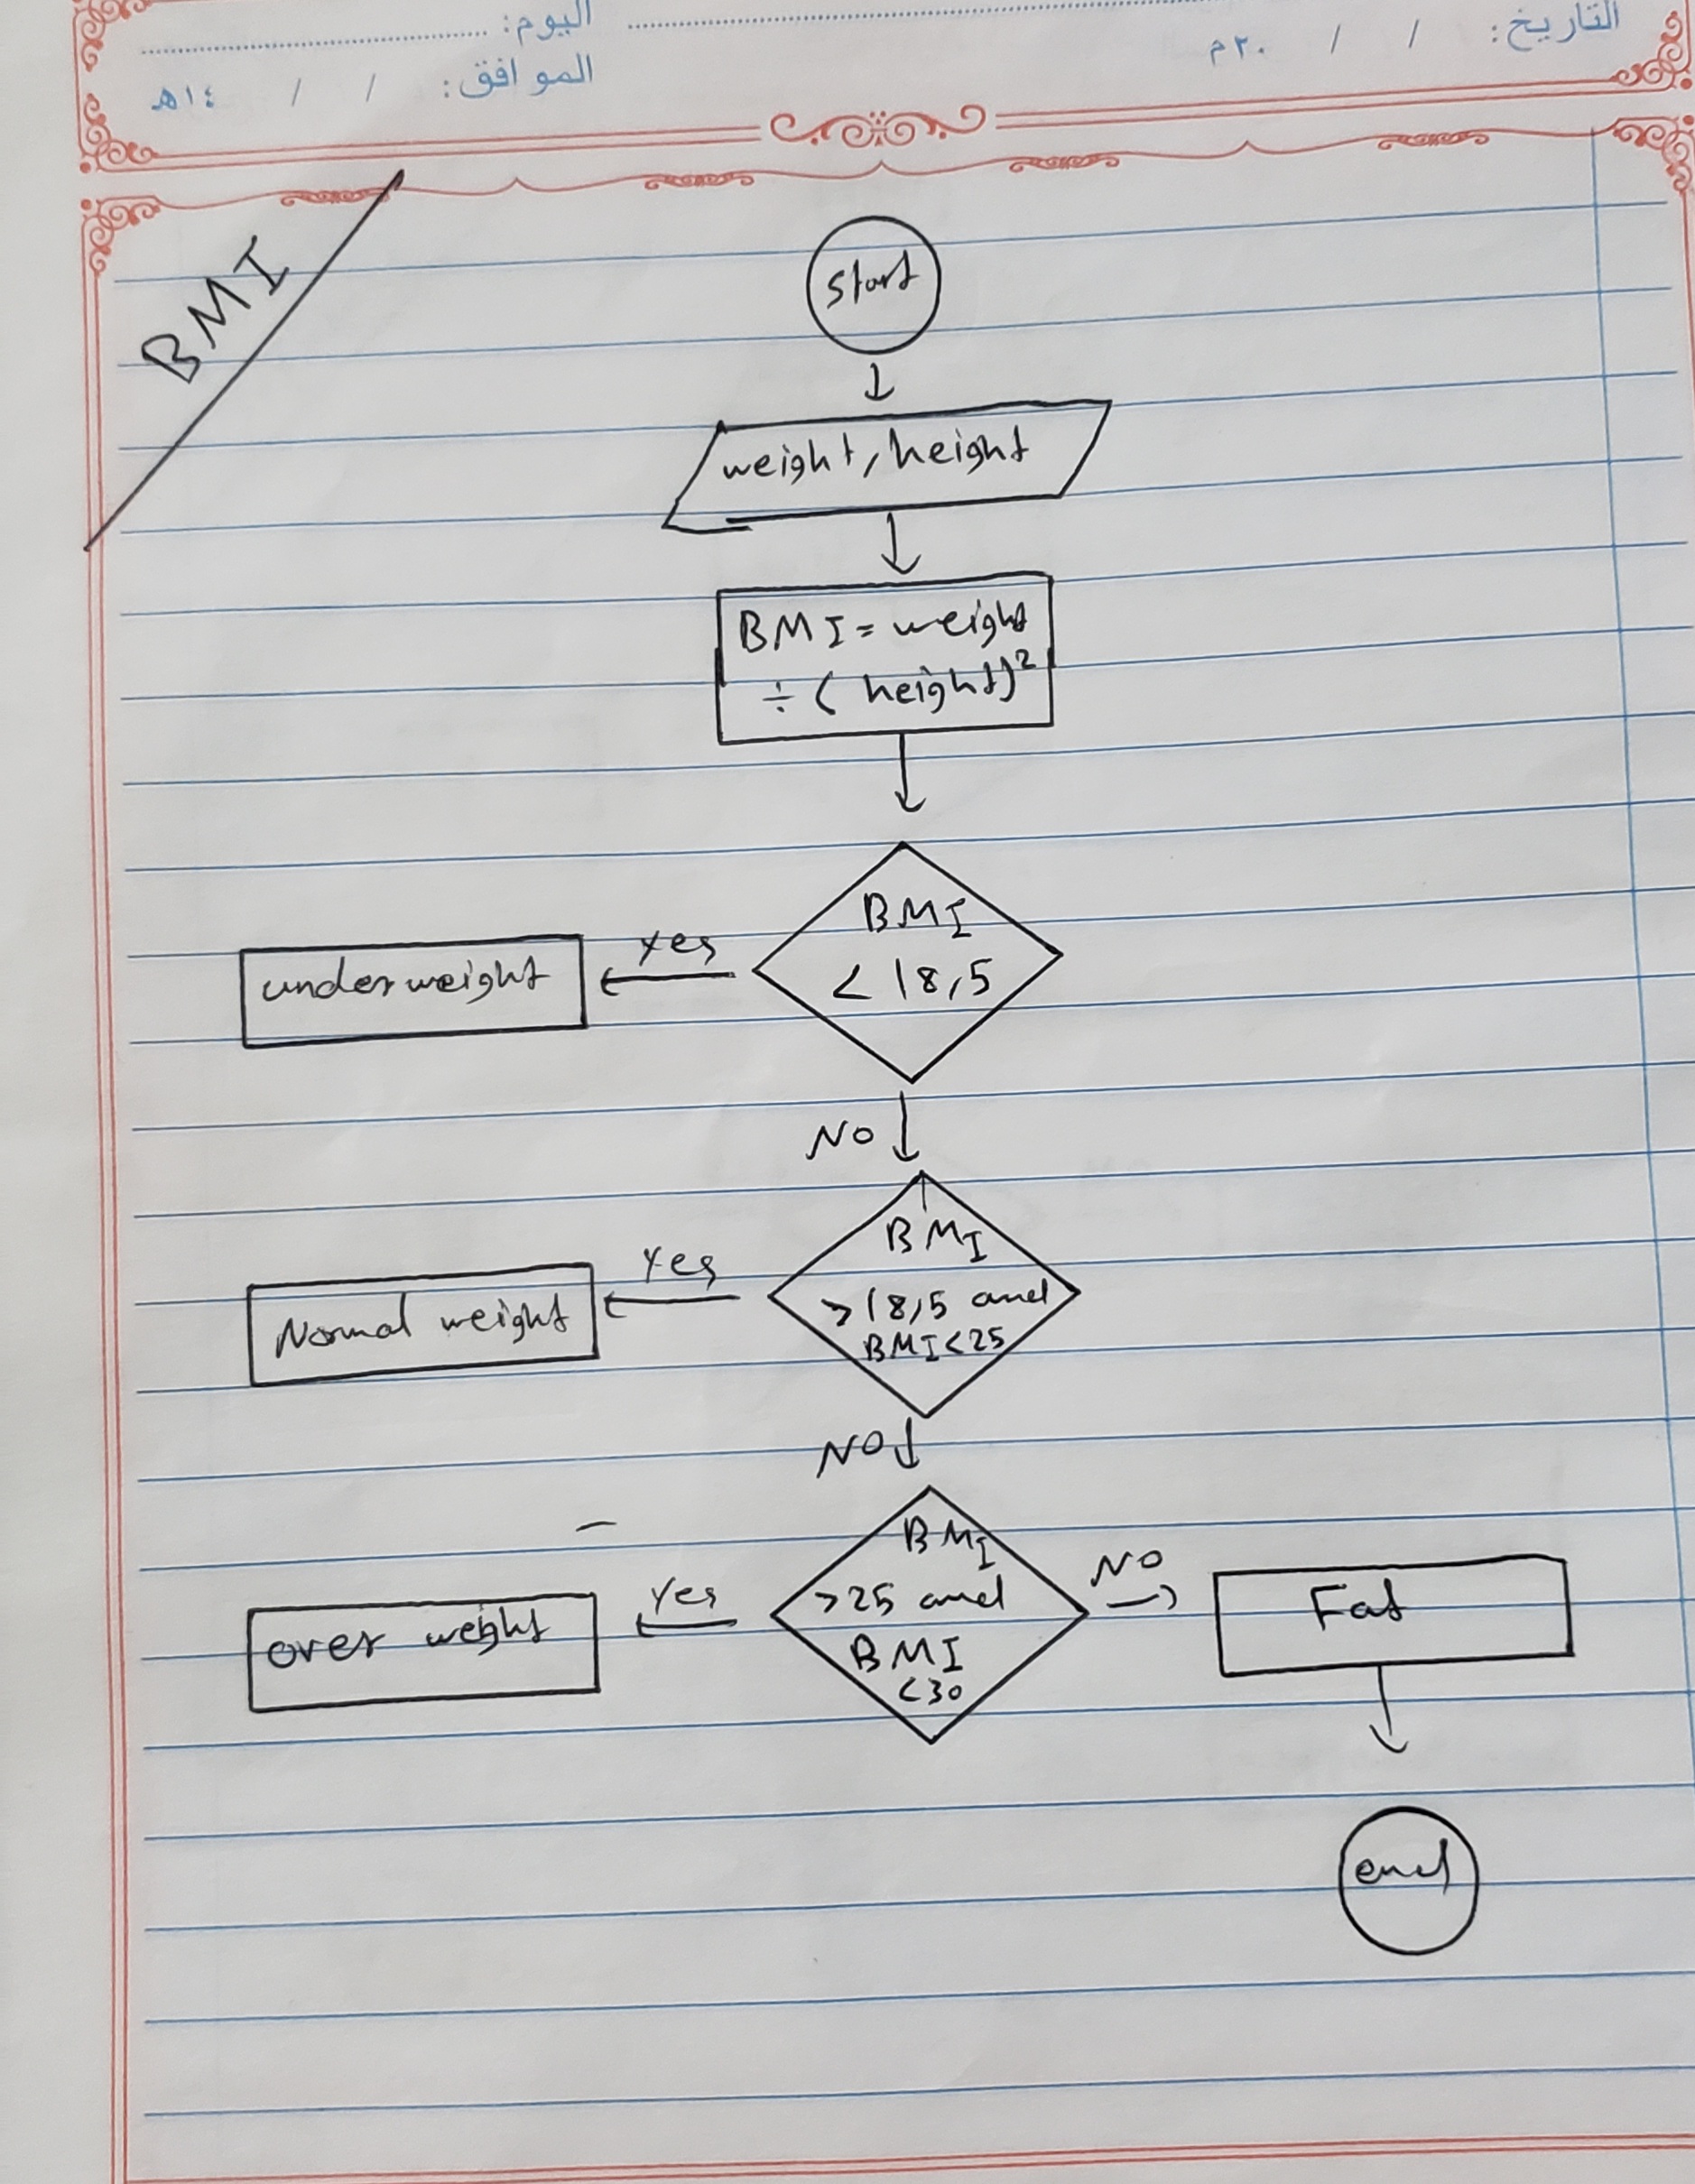 اليوم:
التاريخ: / / ٢٠م
الموافق: / / ١٤هـ
BMI
Start
weight, height
BMI = weight
÷ (height)²
BMI
< 18,5
yes
underweight
NO
BMI
> 18,5 and
BMI < 25
Yes
Normal weight
NO
BMI
>25 and
BMI
<30
Yes
over weight
NO
Fat
end